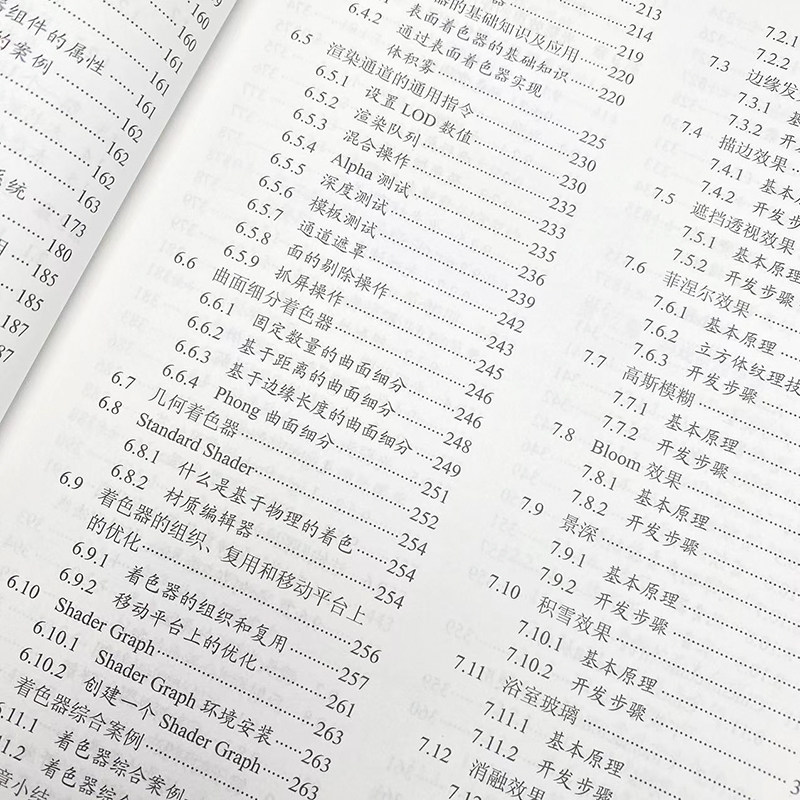 160
160
161
组件的属性 161
的案例 162
162
162
163
系统 173
180
185
185
187
187
213
219
器的基础知识及应用 220
表面着色器的基础知识 220
6.4.2 通过表面着色器实现
体积雾 225
6.5 渲染通道的通用指令 230
6.5.1 设置 LOD 数值 230
6.5.2 渲染队列 232
6.5.3 混合操作 233
6.5.4 Alpha 测试 235
6.5.5 深度测试 236
6.5.6 模板测试 239
6.5.7 通道遮罩 242
6.5.8 面的剔除操作 243
6.5.9 抓屏操作 245
6.6 曲面细分着色器 246
6.6.1 固定数量的曲面细分 246
6.6.2 基于距离的曲面细分 248
6.6.3 基于边缘长度的曲面细分 249
6.6.4 Phong 曲面细分 251
6.7 几何着色器 252
6.8 Standard Shader 254
6.8.1 什么是基于物理的着色 254
6.8.2 材质编辑器 254
6.9 着色器的组织、复用和移动平台上
的优化 256
6.9.1 着色器的组织和复用 257
6.9.2 移动平台上的优化 261
6.10 Shader Graph 263
6.10.1 Shader Graph 环境安装 263
6.10.2 创建一个 Shader Graph 263
着色器综合案例
6.11.1 着色器综合案例
着色器综合
章小结
7.2.1
7.2.2
7.3 边缘发
7.3.1 基
7.3.2 开发
7.4 描边效果
7.4.1 基本
7.4.2 开发
7.5 遮挡透视效果
7.5.1 基本原
7.5.2 开发步
7.6 菲涅尔效果
7.6.1 基本原理
7.6.2 立方体纹理技
7.6.3 开发步骤
7.7 高斯模糊
7.7.1 基本原理
7.7.2 开发步骤
7.8 Bloom 效果
7.8.1 基本原理
7.8.2 开发步骤
7.9 景深
7.9.1 基本原理
7.9.2 开发步骤
7.10 积雪效果
7.10.1 基本原理
7.10.2 开发步骤
7.11 浴室玻璃
7.11.1 基本原理
7.11.2 开发步骤
7.12 消融效果